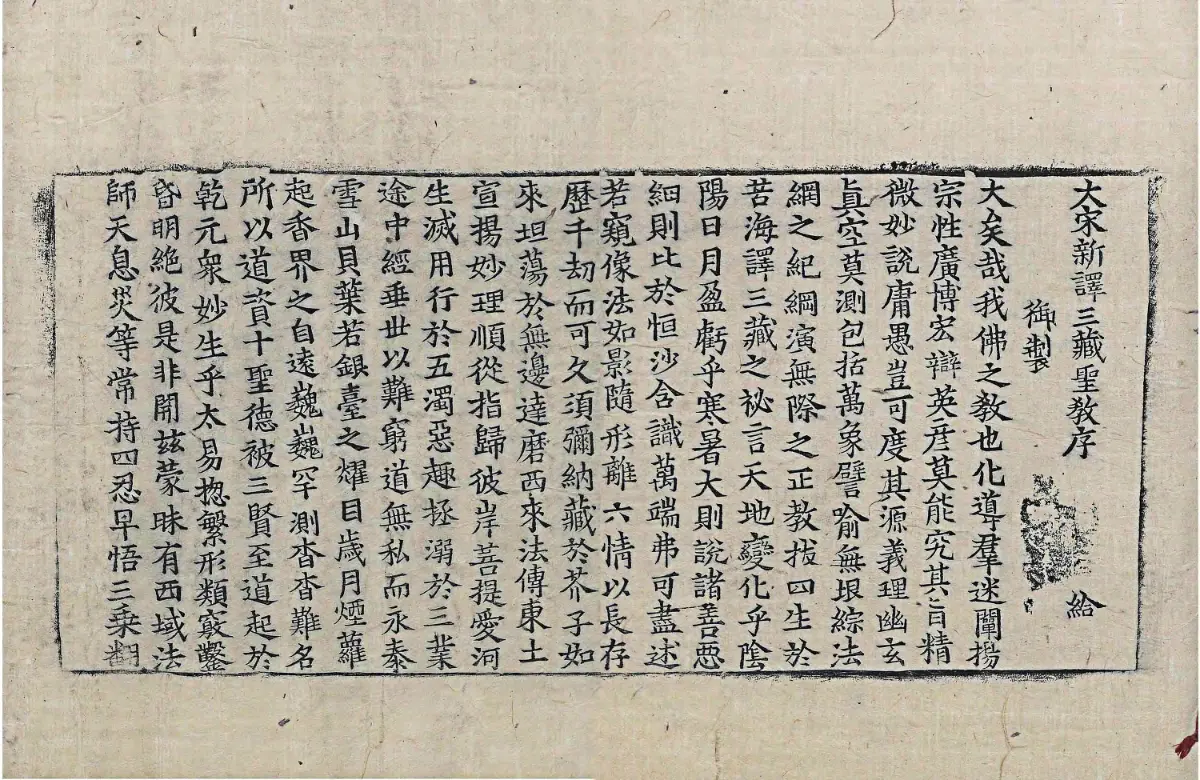 大宋新譯三藏聖教序 給
御製
大矣哉我佛之教也化導羣迷闡揚
宗性廣博宏辯英彥莫能究其旨精
微妙說庸愚豈可度其源義理幽玄
真空莫測包括萬象譬喻無垠綜法
網之紀綱演無際之正教拔四生於
苦海譯三藏之祕言天地變化乎陰
陽日月盈虧乎寒暑大則說諸善惡
細則比於恒沙含識萬端弗可盡述
若窺像法如影隨形離六情以長存
歷千劫而可久須彌納藏於芥子如
來坦蕩於無邊達磨西來法傳東土
宣揚妙理順從指歸彼岸菩提愛河
生滅用行於五濁惡趣拯溺於三業
途中經垂世以難窮道無私而永泰
雪山貝葉若銀臺之耀目歲月煙蘿
起香界之自遠巍巍罕測杳杳難名
所以道資十聖德被三賢至道起於
乾元眾妙生乎太易揔繁形類竅鑿
昏明絕彼是非開茲蒙昧有西域法
師天息災等常持四忍早悟三乘翻